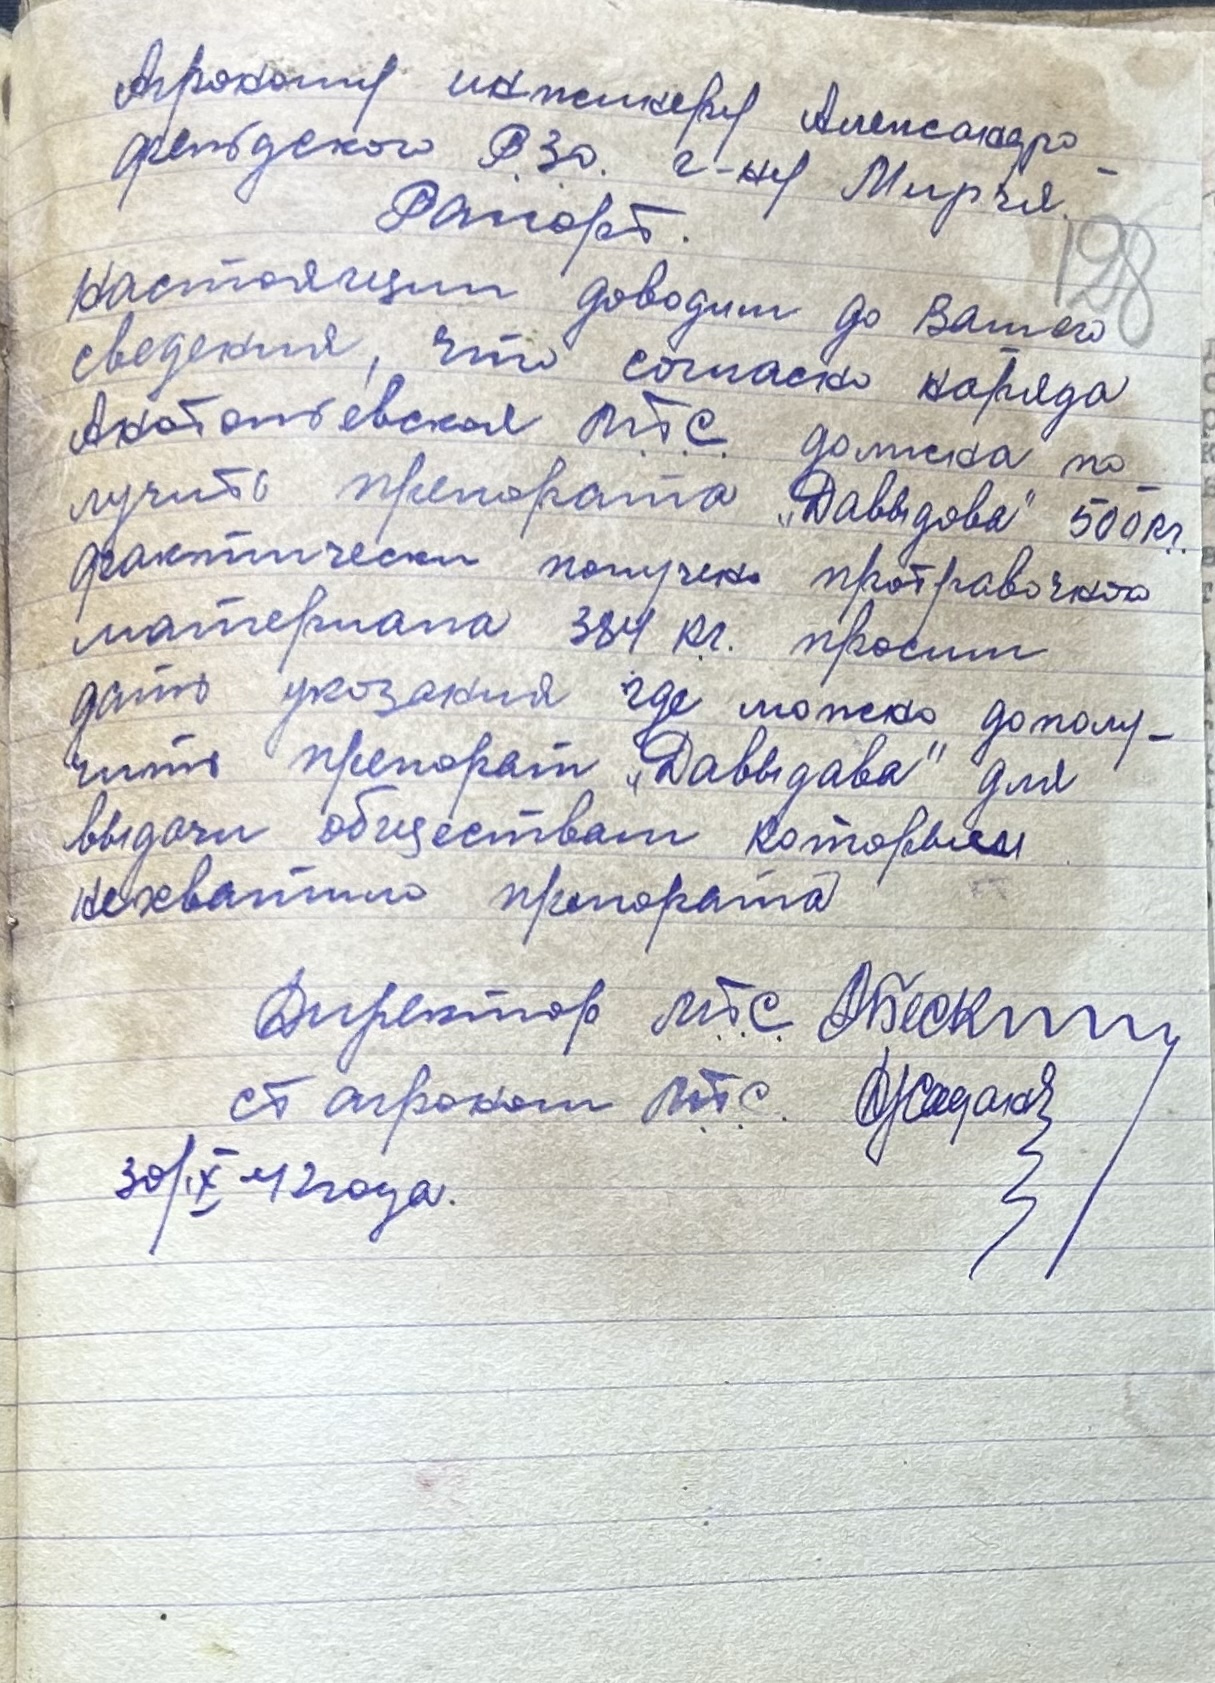 Агроному инженеру Александро-
фельдского Р.З.о. г-ну Мирчя.
Рапорт.
128
Настоящим доводим до Вашего
сведения, что согласно наряда
Анатольевская М.Т.С. должна по-
лучить препората „Даввыдова" 500 кг.
фактически получено протравочного
материала 384 кг. просим
дать укозания где можно дополу-
чить препорат „Даввыдава" для
выдачи обществам которым
нехватило препората
Директор М.Т.С.
ст агроном М.Т.С.
30/IX 42 года.